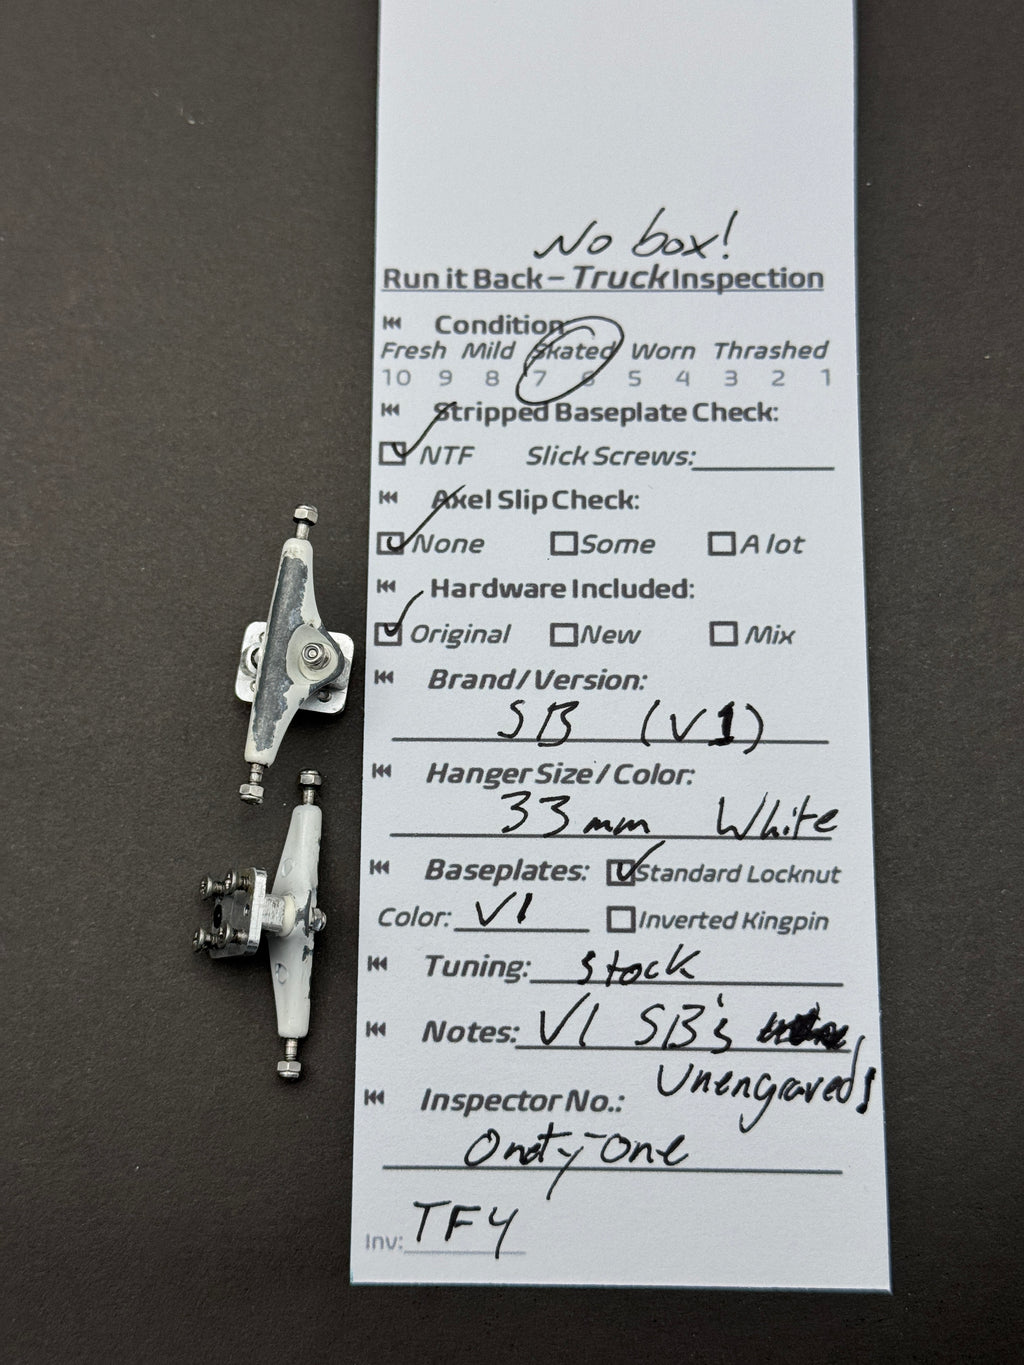 No box!
Run it Back – Truck Inspection
Condition
Fresh Mild Skated Worn Thrashed
10 9 8 7 6 5 4 3 2 1
Stripped Baseplate Check:
NTF Slick Screws:
Axel Slip Check:
None Some A lot
Hardware Included:
Original New Mix
Brand/Version:
SB (V1)
Hanger Size / Color:
33mm White
Baseplates: Standard Locknut
Color: V1 Inverted Kingpin
Tuning: Stock
Notes: V1 SB's
Unengraveds
Inspector No.:
Onety-One
Inv: TFY